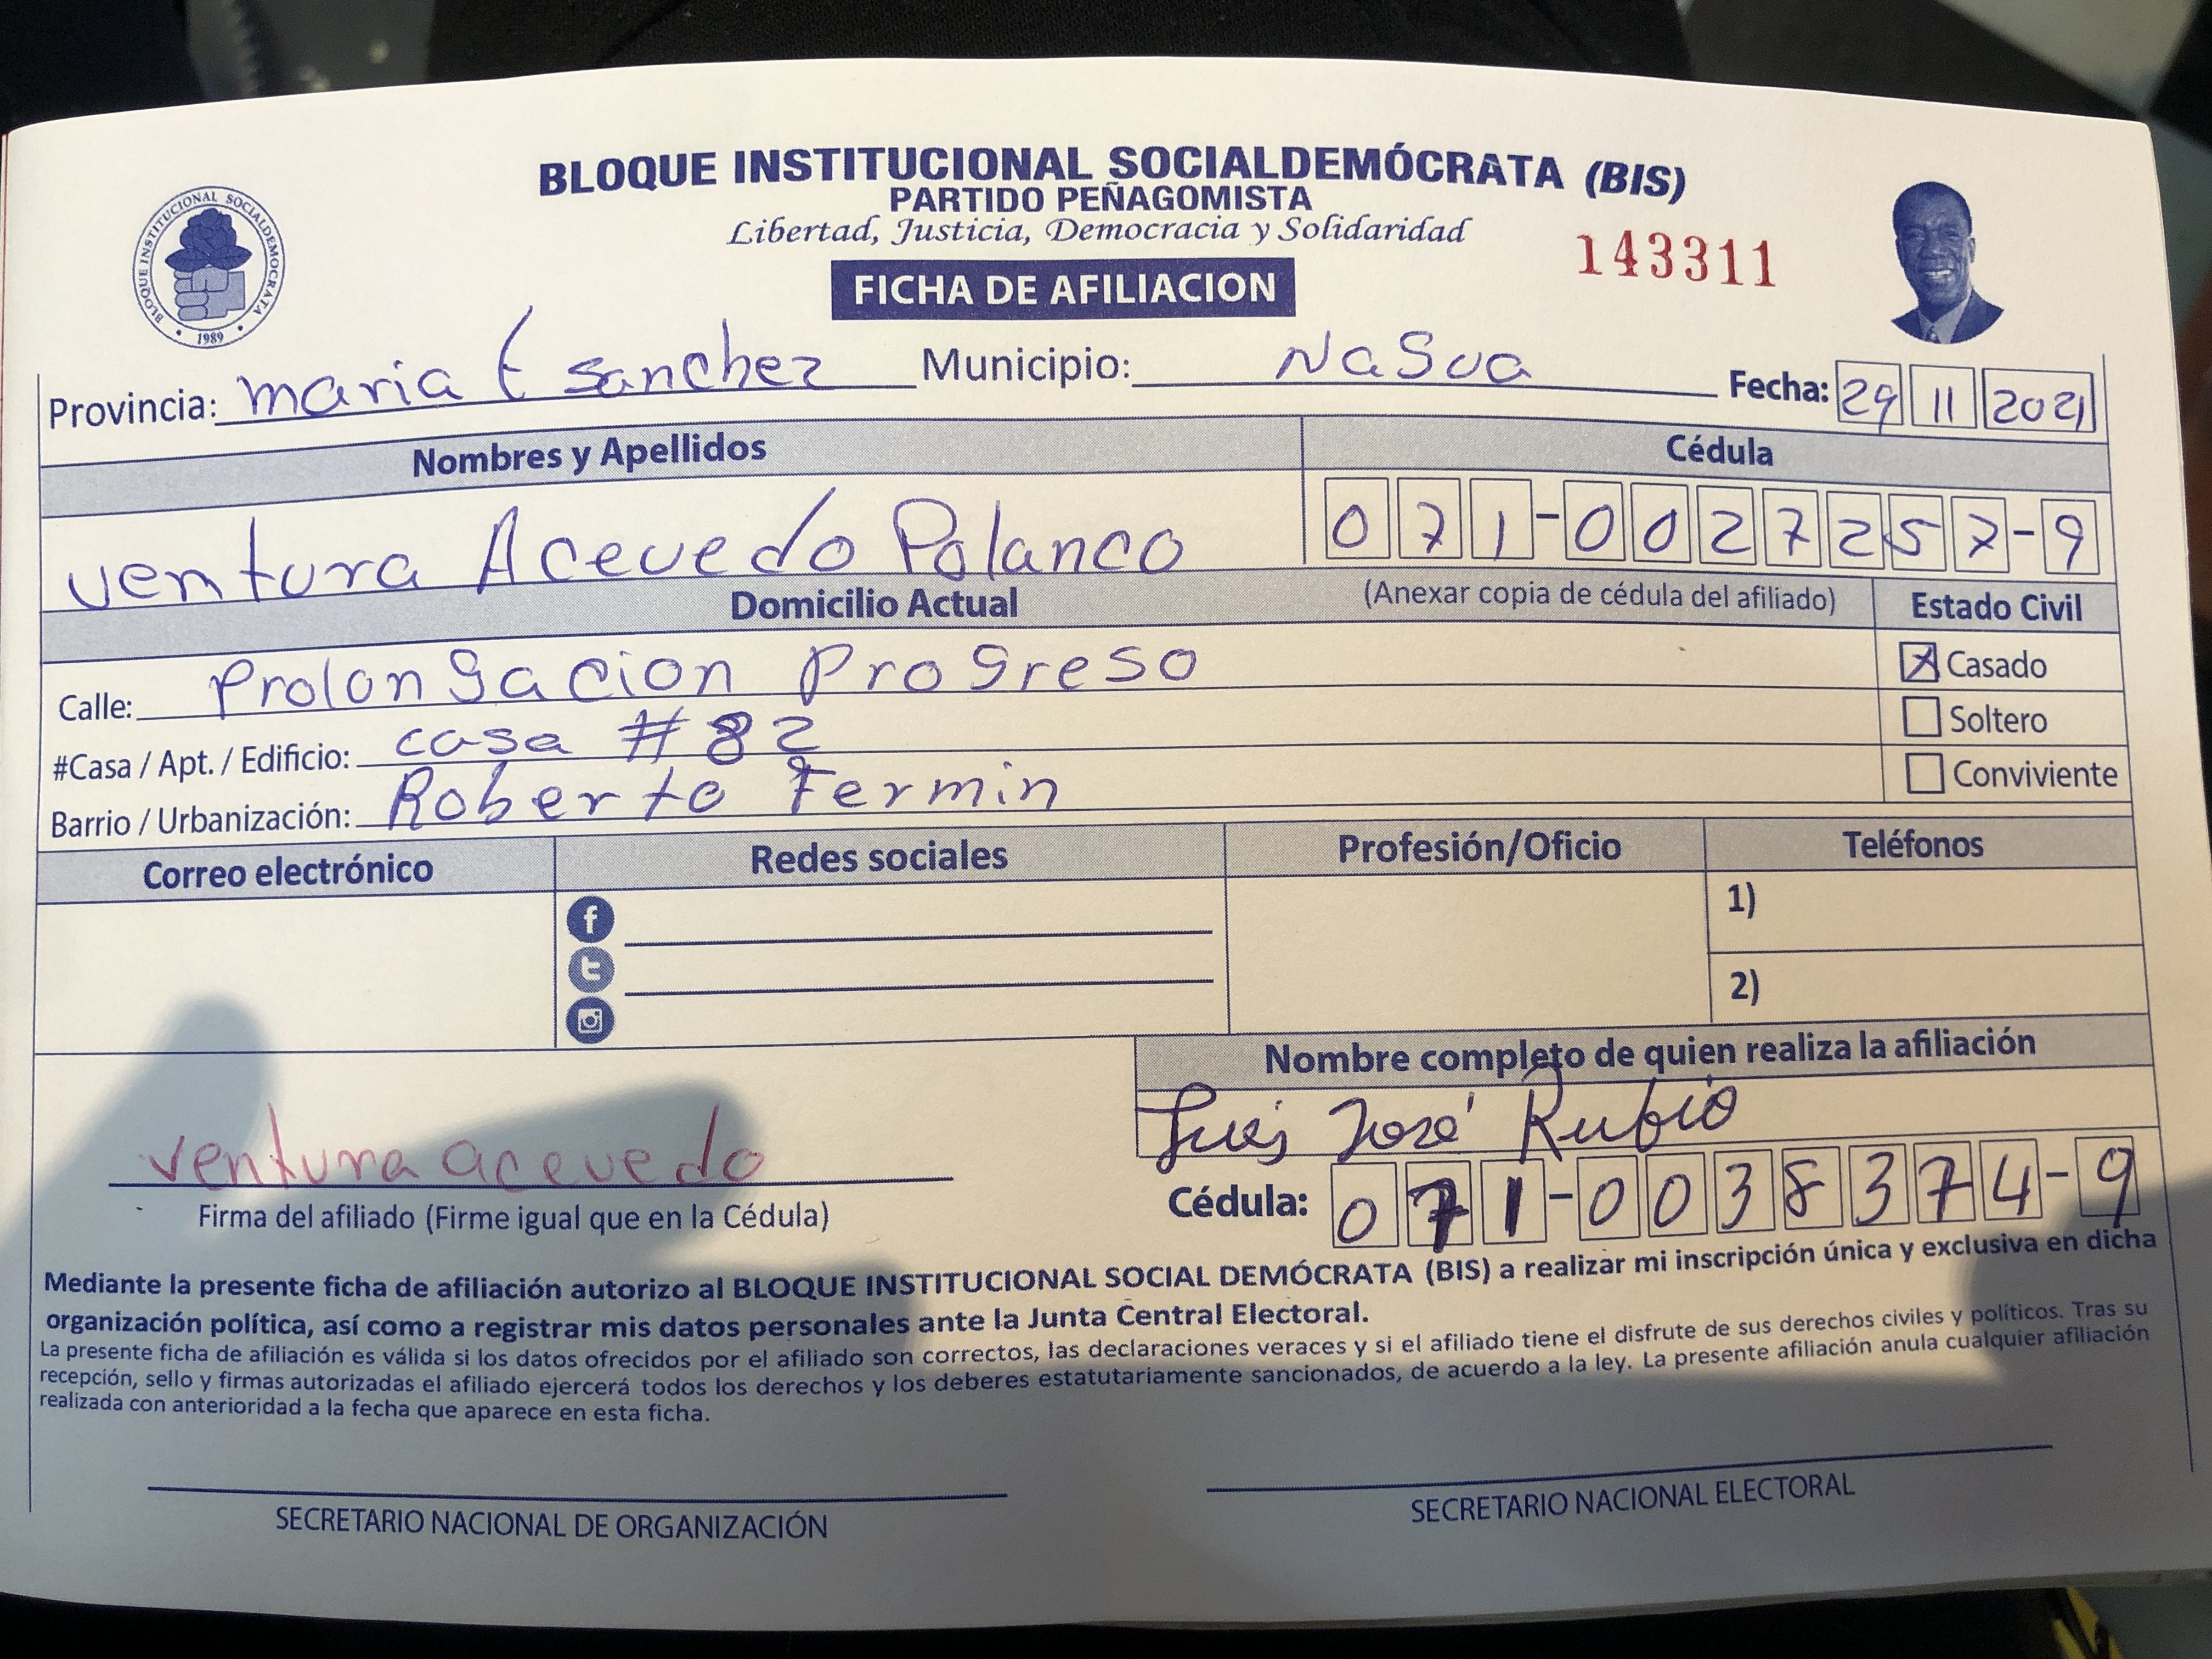 BLOQUE INSTITUCIONAL SOCIALDEMÓCRATA (BIS)
PARTIDO PEÑAGOMISTA
Libertad, Justicia, Democracia y Solidaridad
143311
FICHA DE AFILIACION
BLOQUE INSTITUCIONAL SOCIALDEMOCRATA
• 1989 •
Provincia: maria t sanchez Municipio: NaSua Fecha: 29 11 2021
Nombres y Apellidos Cédula
ventura Acevedo Polanco 071-0027257-9
Domicilio Actual (Anexar copia de cédula del afiliado) Estado Civil
Calle: Prolongacion Progreso Casado
#Casa / Apt. / Edificio: casa #82 Soltero
Barrio / Urbanización: Roberto Fermin Conviviente
Correo electrónico Redes sociales Profesión/Oficio Teléfonos
1)
2)
Nombre completo de quien realiza la afiliación
Luis José Rubio
ventura acevedo
Cédula: 071-0038374-9
Firma del afiliado (Firme igual que en la Cédula)
Mediante la presente ficha de afiliación autorizo al BLOQUE INSTITUCIONAL SOCIAL DEMÓCRATA (BIS) a realizar mi inscripción única y exclusiva en dicha
organización política, así como a registrar mis datos personales ante la Junta Central Electoral.
La presente ficha de afiliación es válida si los datos ofrecidos por el afiliado son correctos, las declaraciones veraces y si el afiliado tiene el disfrute de sus derechos civiles y políticos. Tras su
recepción, sello y firmas autorizadas el afiliado ejercerá todos los derechos y los deberes estatutariamente sancionados, de acuerdo a la ley. La presente afiliación anula cualquier afiliación
realizada con anterioridad a la fecha que aparece en esta ficha.
SECRETARIO NACIONAL DE ORGANIZACIÓN SECRETARIO NACIONAL ELECTORAL